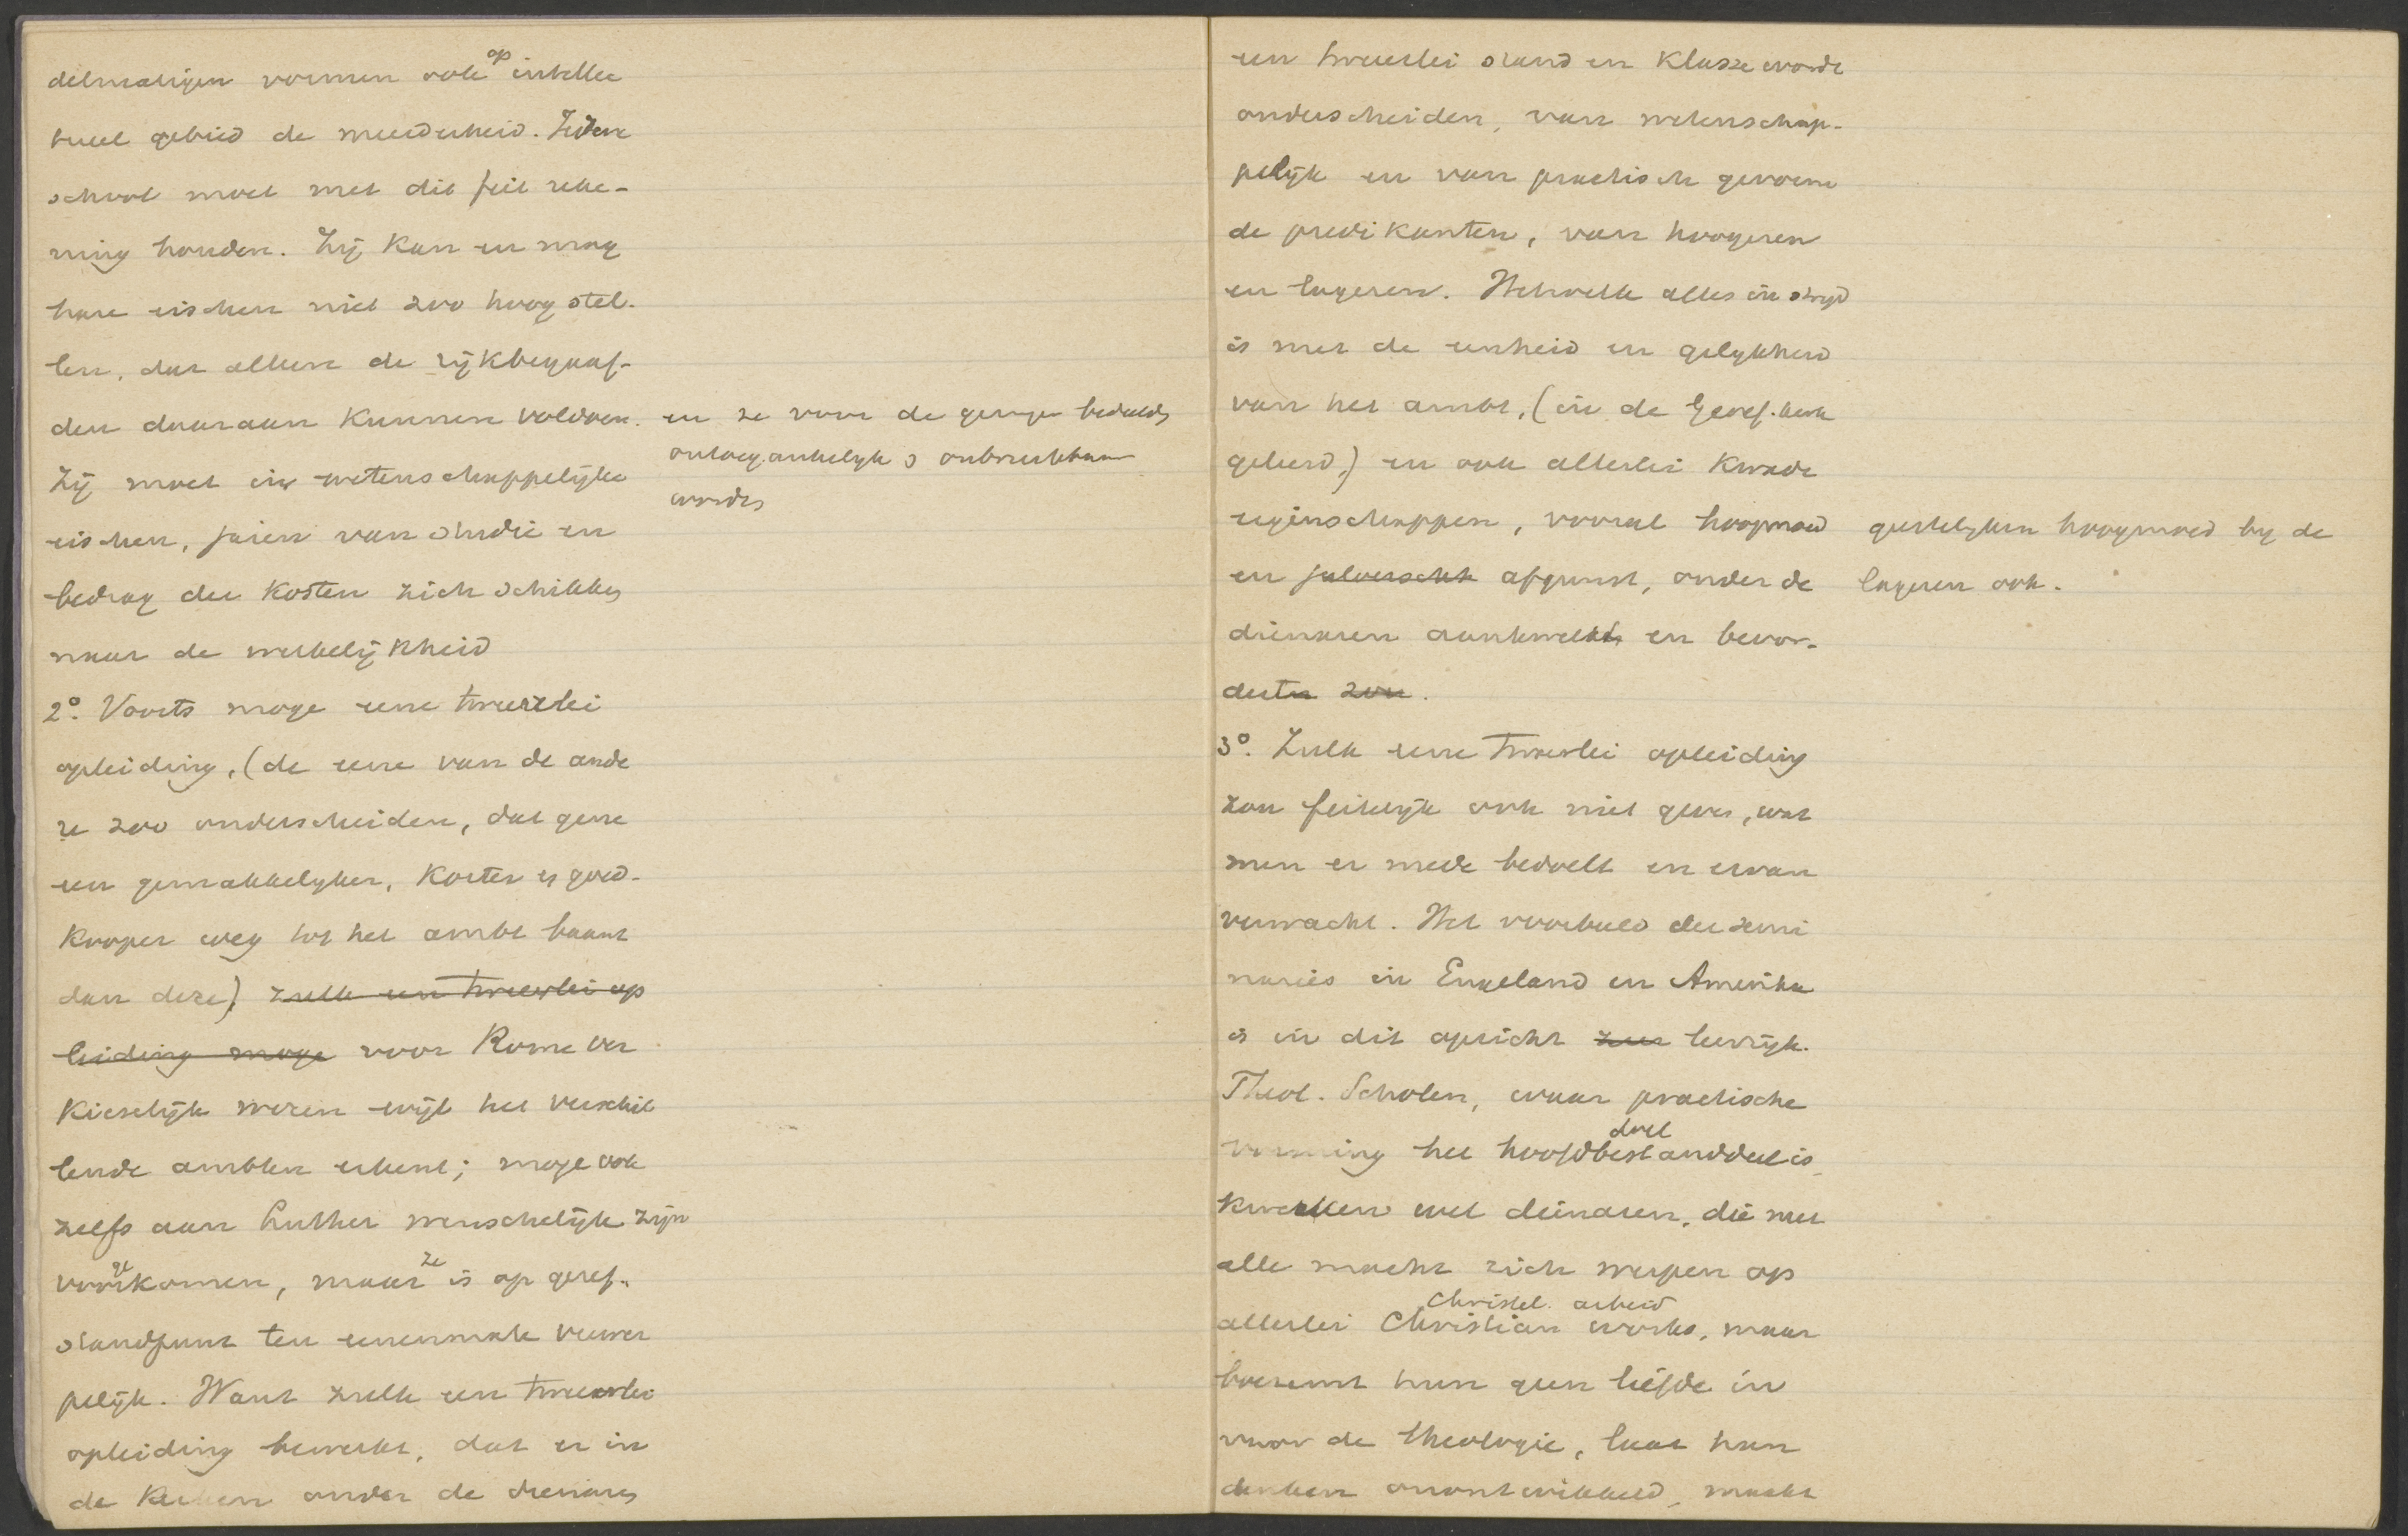 delmatigen vormen ook op intellec
tueel gebied de meerderheid. Iedere
school moet met dit feit reke-
ning houden. Zij kan en mag
hare eischen niet zoo hoog stel-
len, dat alleen de rijkbegaaf-
den daaraan kunnen voldoen. en ze voor de geringer bedeelde
ontoegankelijk & onbruikbaar
worden
Zij moet in wetenschappelijke
eischen, jaren van studie en
bedrag der kosten zich schikken
naar de werkelijkheid
2°. Voorts moge eene tweeërlei
opleiding, (de eene van de ande
re zoo onderscheiden, dat gene
een gemakkelyker, korter en goed-
kooper weg tot het ambt baant
dan deze) zulk een tweeërlei op
leiding moge voor Rome ver
kieselijk wezen wijl het verschil
lende ambten erkent; moge ook
zelfs aan Luther wenschelijk zijn
voorgekomen, maar ze is op geref.
standpunt ten eenenmale verwer
pelijk. Want zulk een tweeërlei
opleiding bewerkt, dat er in
de kerken onder de dienaren
een tweeërlei stand en klasse worde
onderscheiden, van wetenschap-
pelijk en van practisch gevorm
de predikanten, van hoogeren
en lageren. Hetwelk alles in strijd
is met de eenheid en gelykheid
van het ambt, (in de Geref. kerk
geleerd,) en ook allerlei kwade
eigenschappen, vooral hoogmoed geestelyken hoogmoed by de
en jaloerschh afgunst, onder de lageren ook.
dienaren aankweekt en bevor-
derten zou.
3°. Zulk eene tweeërlei opleiding
zou feitelijk ook niet geven, wat
men er mede bedoelt en ervan
verwacht. Het voorbeeld der semi
naries in Engeland en Amerika
is in dit opzicht zeer leerrijk.
Theol. Scholen, waar practische
doel
vorming het hoofdbestanddeel is,
kweeken wel dienaren, die met
alle macht zich werpen op
Christel. arbeid
allerlei Christian works, maar
boezemt hun geen liefde in
voor de theologie, laat hun
denken onontwikkeld, maakt